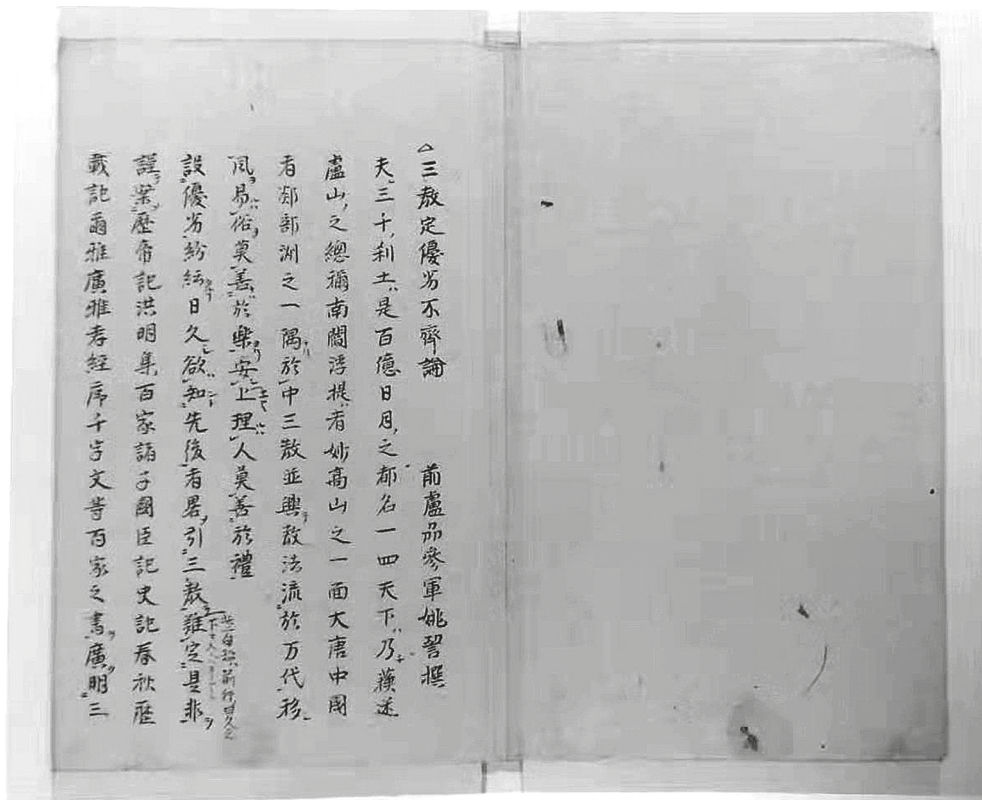 三教定優劣不齊論　前盧州參軍姚䛒撰
夫三千利土是百億日月之都名一四天下乃蘓迷
盧山之總禰南閻浮提者妙高山之一面大唐中國
者郯部洲之一隅於中三教並興教法流於万代移
風易俗莫善於樂安上理人莫善於禮
設優劣紛紜日久欲知先後者畧引三教難定是非
謹案歷帝記洪明集百家諸子國臣記史記春秋歷
載記爾雅廣雅孝經序千字文等百家之書廣明三